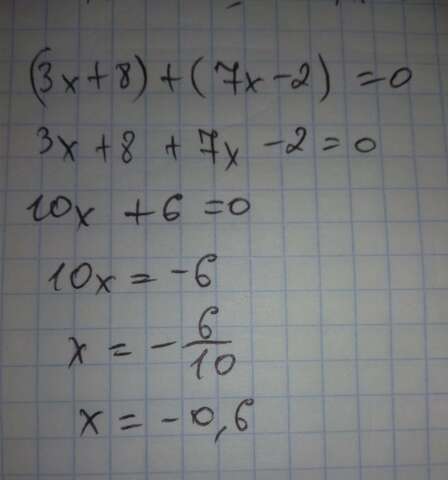 (3x+8)+(7x-2)=0
3x+8+7x-2=0
10x+6=0
10x=-6
x=-6/10
x=-0,6